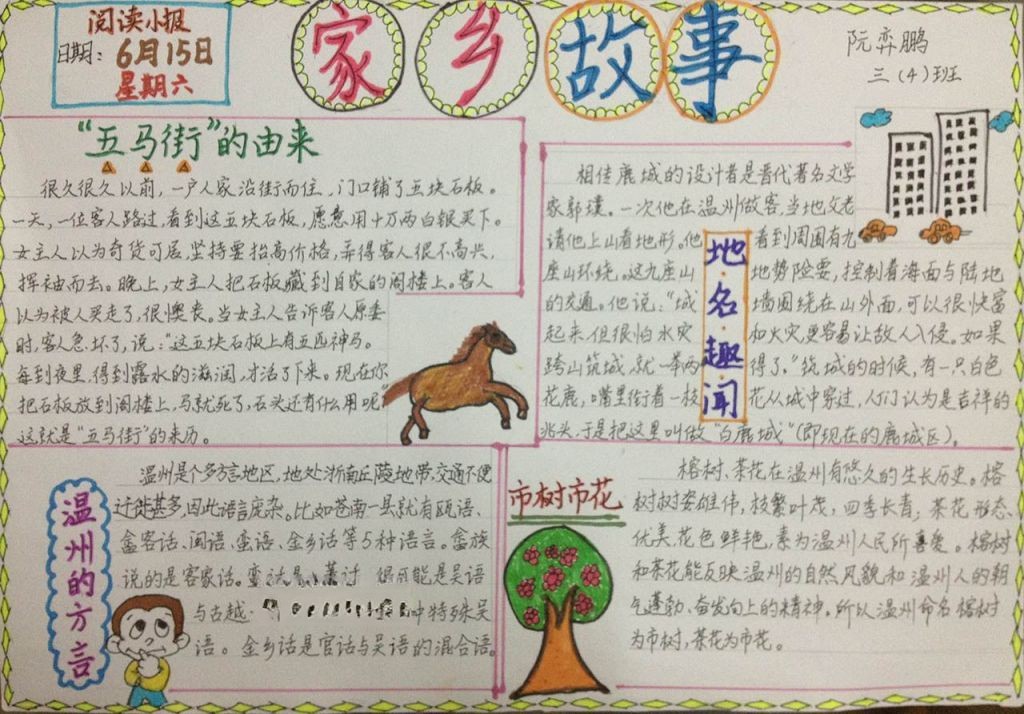 阅读小报
日期：6月15日
星期六
家乡故事
阮弈鹏
三（4）班
“五马街”的由来
很久很久以前，一户人家沿街而住，门口铺了五块石板。
一天，一位客人路过，看到这五块石板，愿意用十万两白银买下。
女主人以为奇货可居，坚持要抬高价格，弄得客人很不高兴，
挥袖而去。晚上，女主人把石板藏到自家的阁楼上。客人
以为被人买走了，很懊丧。当女主人告诉客人原委
时，客人急坏了，说：“这五块石板上有五匹神马。
每到夜里，得到露水的滋润，才活了下来。现在你
把石板放到阁楼上，马就死了，石头还有什么用呢”
这就是“五马街”的来历。
地名趣闻
相传鹿城的设计者是晋代著名文学
家郭璞。一次他在温州做客，当地父老
请他上山看地形。他看到周围有九
座山环绕。这九座山地势险要，控制着海面与陆地
的交通。他说：“城墙围绕在山外面，可以很快富
起来，但很怕水灾和火灾，更容易让敌人入侵。如果
跨山筑城，就一举两得了。”筑城的时候，有一只白色
花鹿，嘴里衔着一枝花从城中穿过，人们认为是吉祥的
兆头，于是把这里叫做“白鹿城”（即现在的鹿城区）。
温州的方言
温州是个多方言地区，地处浙南丘陵地带，交通不便
迁徙甚多，因此语言庞杂。比如苍南一县就有瓯语、
畲客话、闽语、蛮语、金乡话等5种语言。畲族
说的是客家话。蛮话是 可能是吴语
与古越 中特殊吴
语。金乡话是官话与吴语的混合语。
市树市花
榕树、茶花在温州有悠久的生长历史。榕
树树姿雄伟，枝繁叶茂，四季长青，茶花形态
优美，花色鲜艳，素为温州人民所喜爱。榕树
和茶花能反映温州的自然风貌和温州人的朝
气蓬勃、奋发向上的精神。所以温州命名榕树
为市树，茶花为市花。